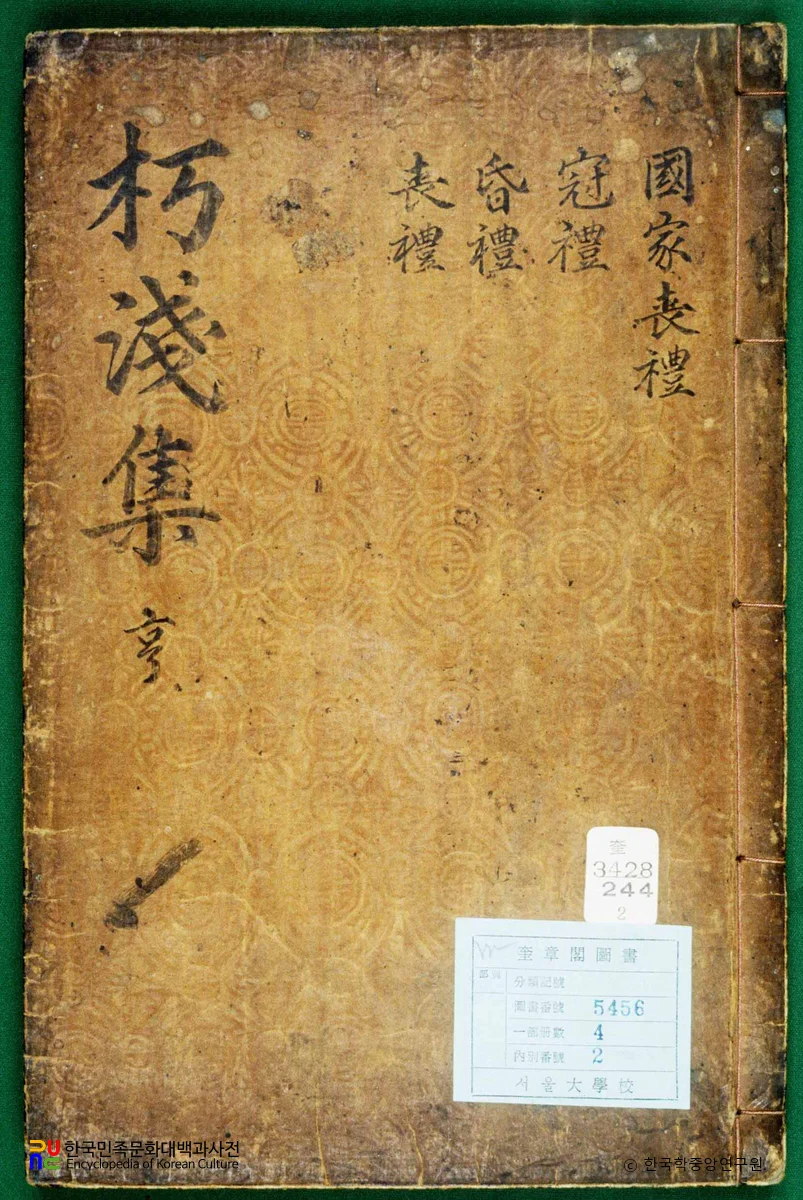 國家喪禮
冠禮
昏禮
喪禮
朽淺集 亨
奎
3428
244
2
奎章閣圖書
部類
分類記號
圖書番號 5456
一部冊數 4
內別番號 2
서울大學校
한국민족문화대백과사전
Encyclopedia of Korean Culture
© 한국학중앙연구원